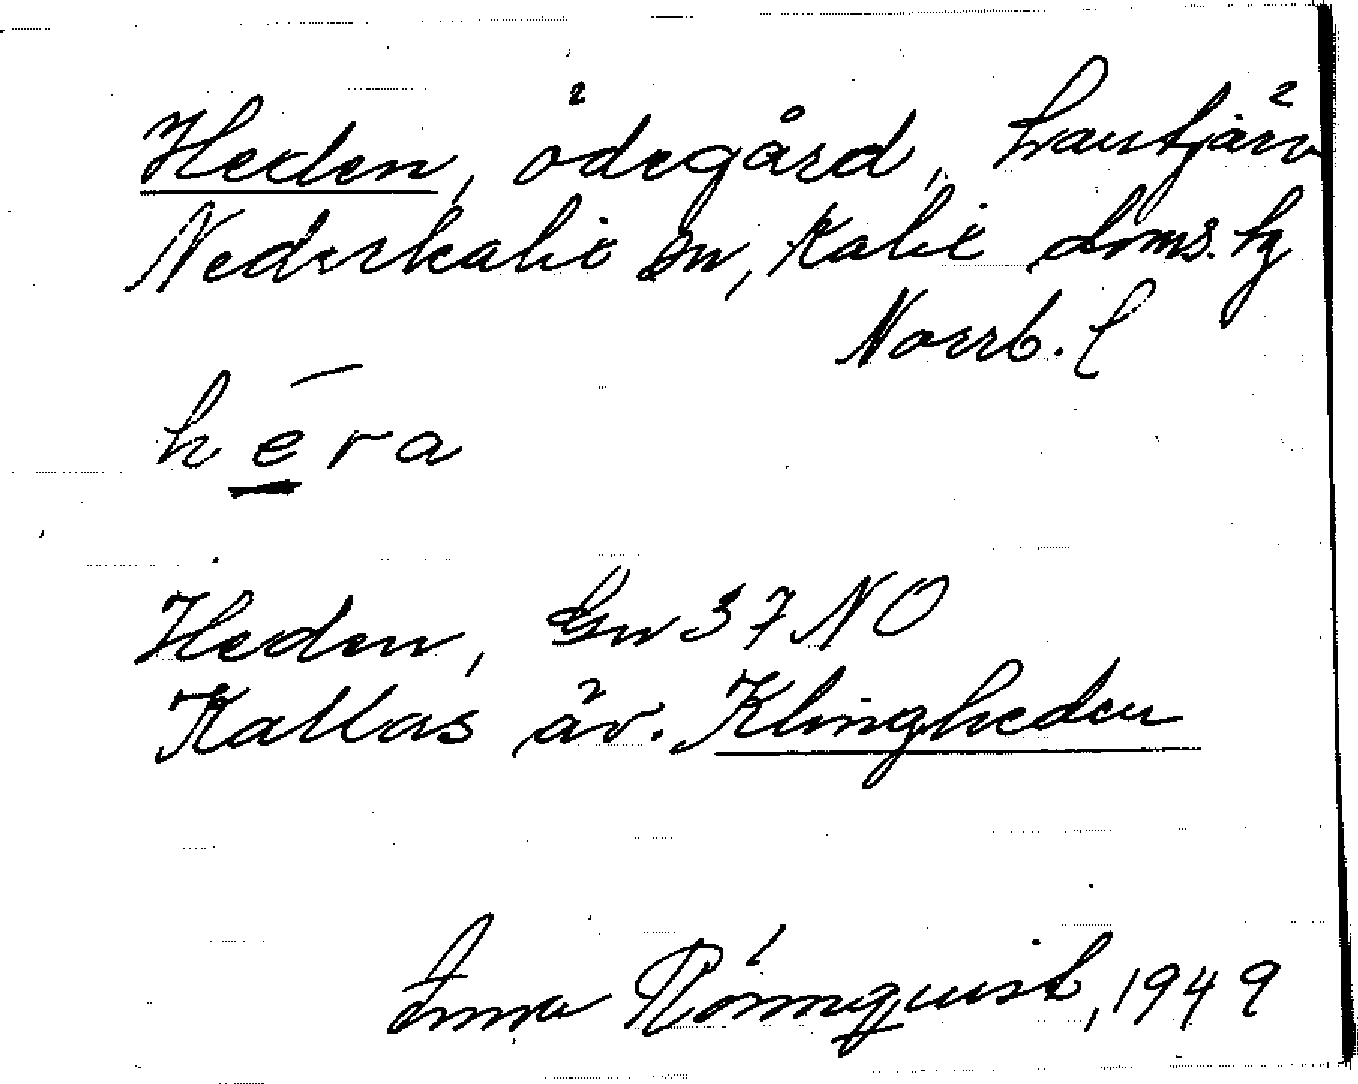 Heden, ödegård, Lantjärv
Nederkalix sn, Kalix doms. hg
Norrb. l
hēra
Heden, Gn 37 NO
Kallas äv. Klingheden
Anna Rönnquist, 1949